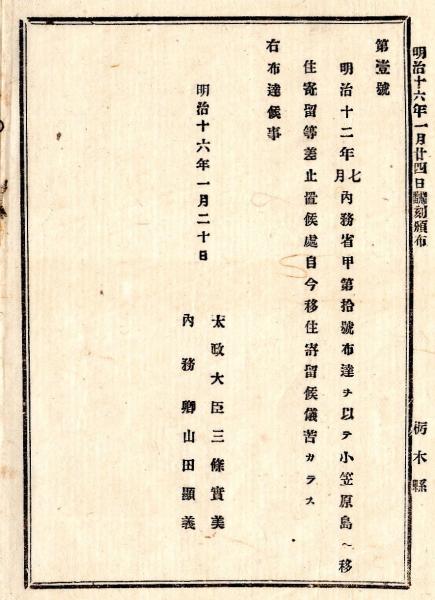 明治十六年一月廿四日飜刻頒布 栃木縣
第壹號
明治十二年七月內務省甲第拾號布達ヲ以テ小笠原島ヘ移
住寄留等差止置候處自今移住寄留候儀苦カラス
右布達候事
明治十六年一月二十日
太政大臣三條實美
內務卿山田顯義